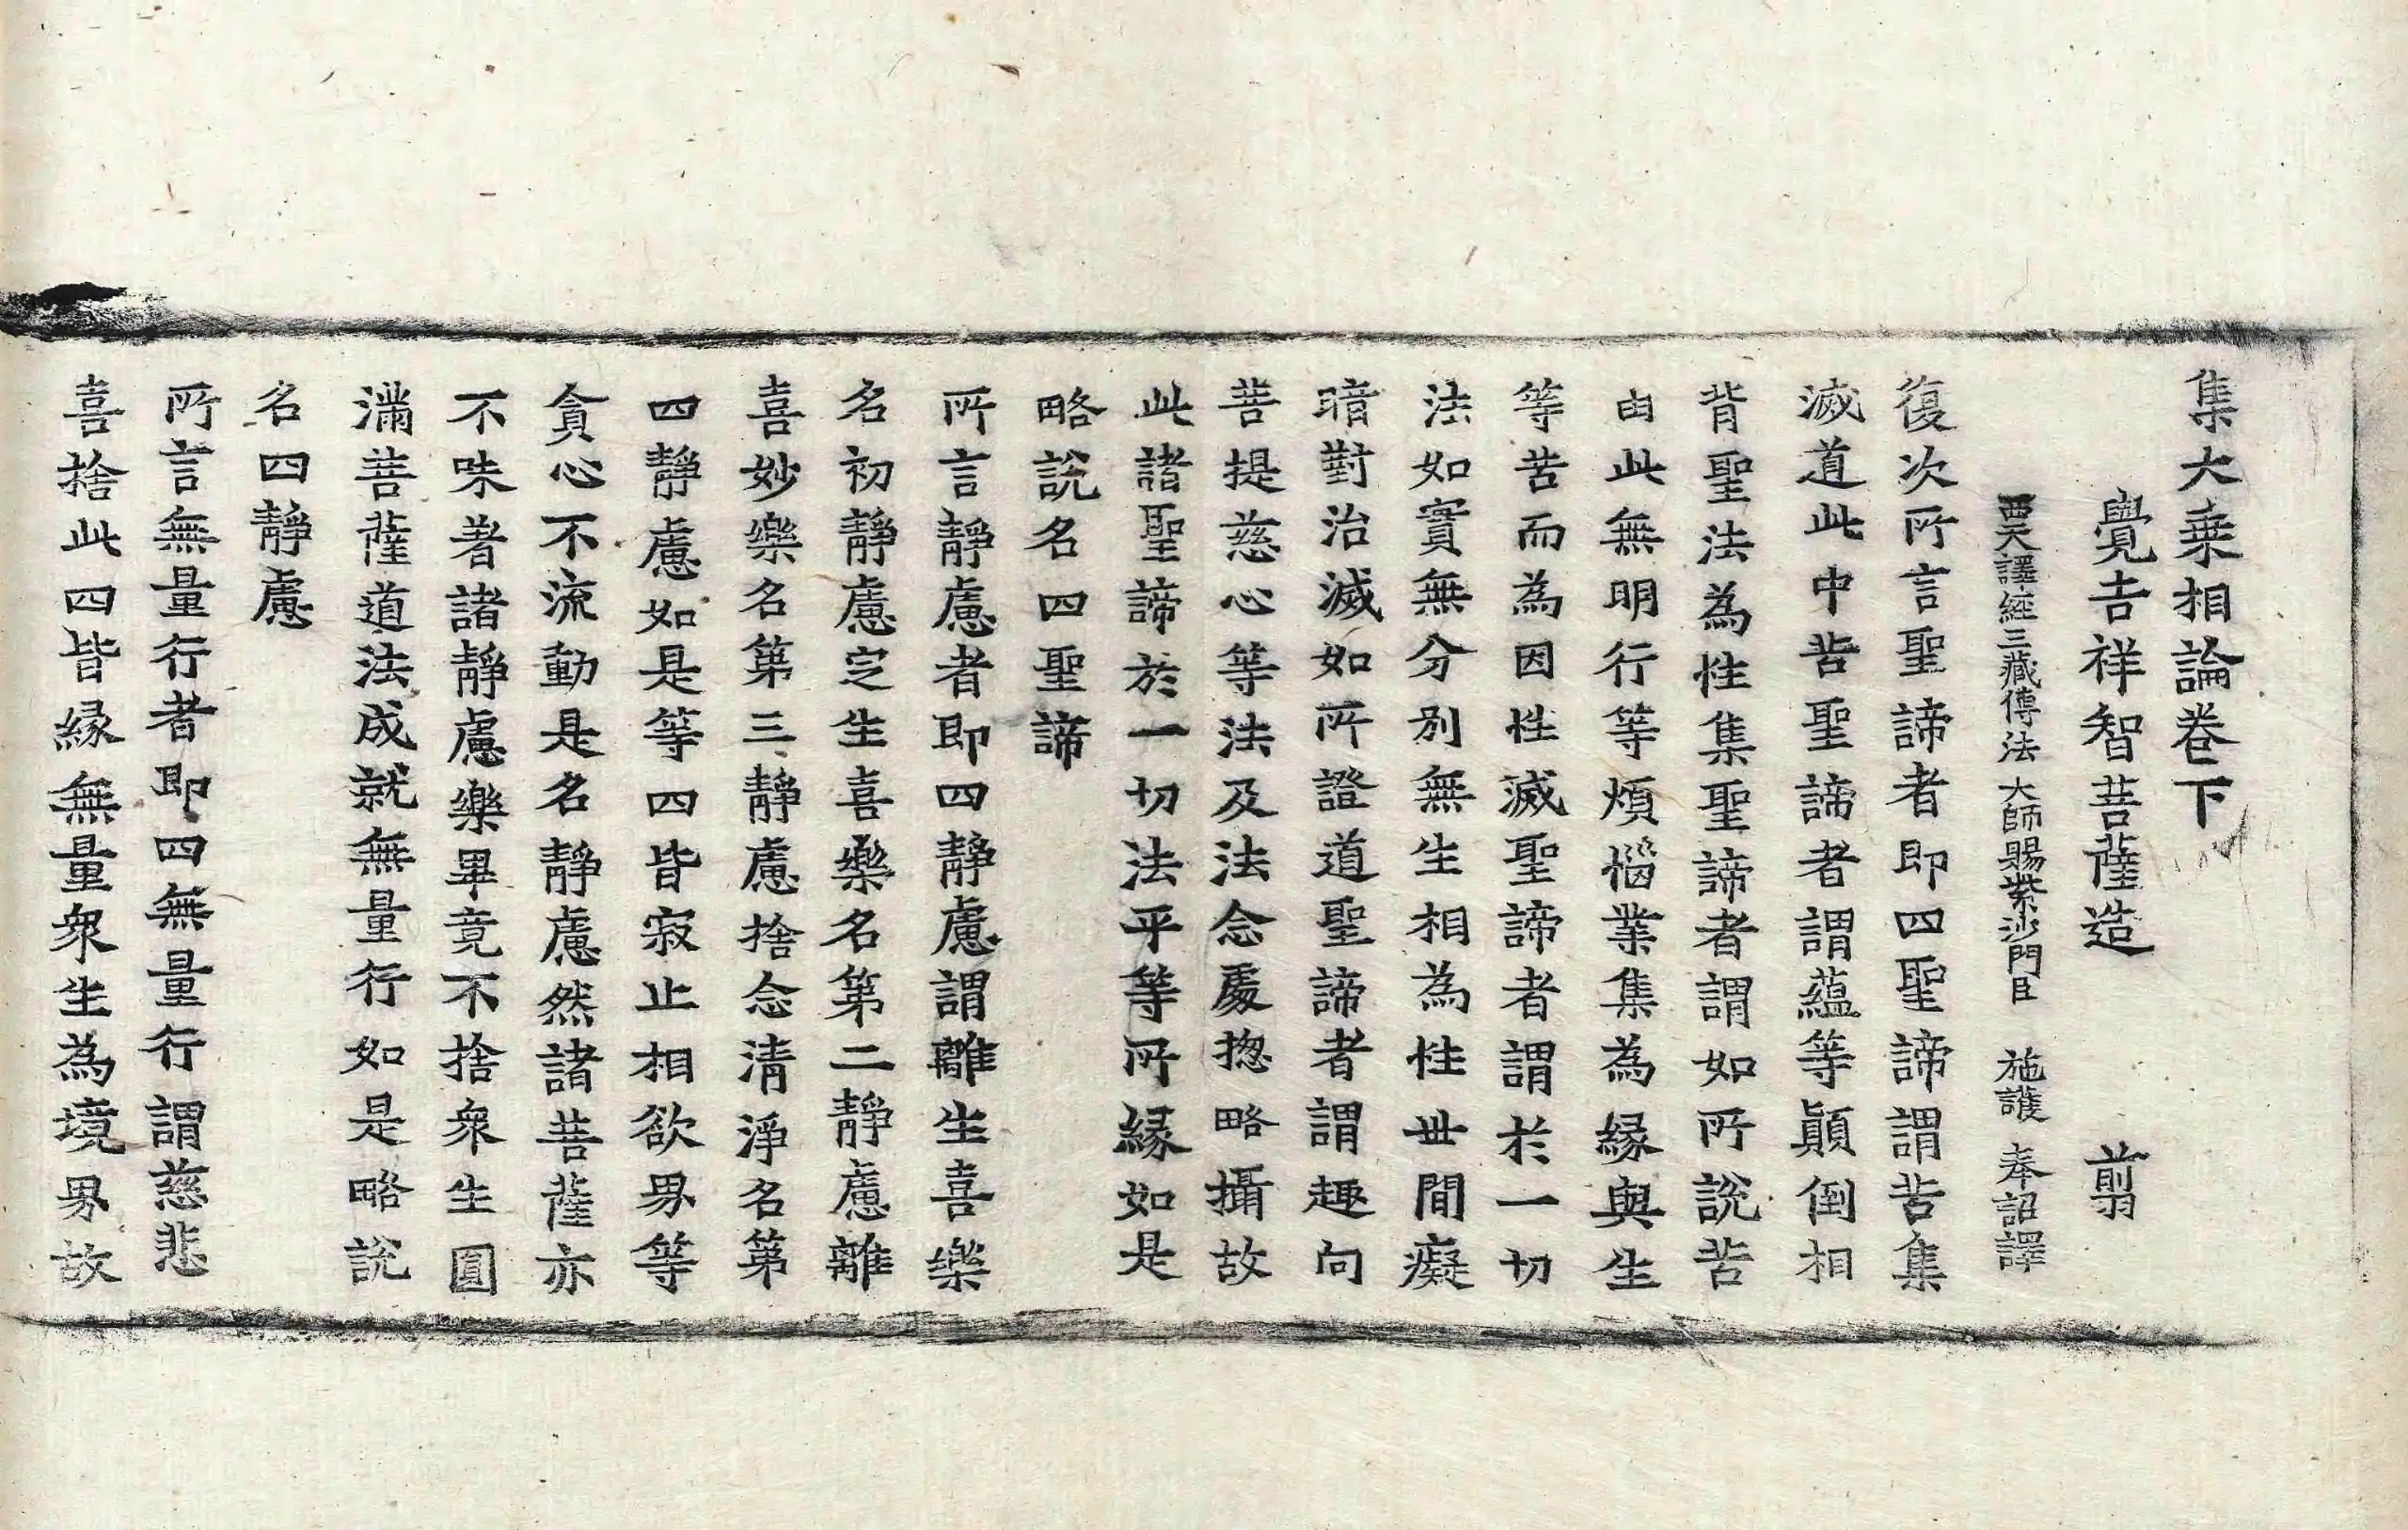 集大乗相論卷下
覺吉祥智菩薩造　剪
西天譯經三藏傳法大師賜紫沙門臣　施護　奉詔譯
復次所言聖諦者即四聖諦謂苦集
滅道此中苦聖諦者謂蘊等顚倒相
背聖法為性集聖諦者謂如所說苦
由此無明行等煩惱業集為緣與生
等苦而為因性滅聖諦者謂於一切
法如實無分別無生相為性世間癡
暗對治滅如所證道聖諦者謂趣向
菩提慈心等法及法念處揔略攝故
此諸聖諦於一切法平等所緣如是
略說名四聖諦
所言靜慮者即四靜慮謂離生喜樂
名初靜慮定生喜樂名第二靜慮離
喜妙樂名第三靜慮捨念清淨名第
四靜慮如是等四皆寂止相欲界等
貪心不流動是名靜慮然諸菩薩亦
不味著諸靜慮樂畢竟不捨衆生圓
滿菩薩道法成就無量行如是略說
名四靜慮
所言無量行者即四無量行謂慈悲
喜捨此四皆緣無量衆生為境界故